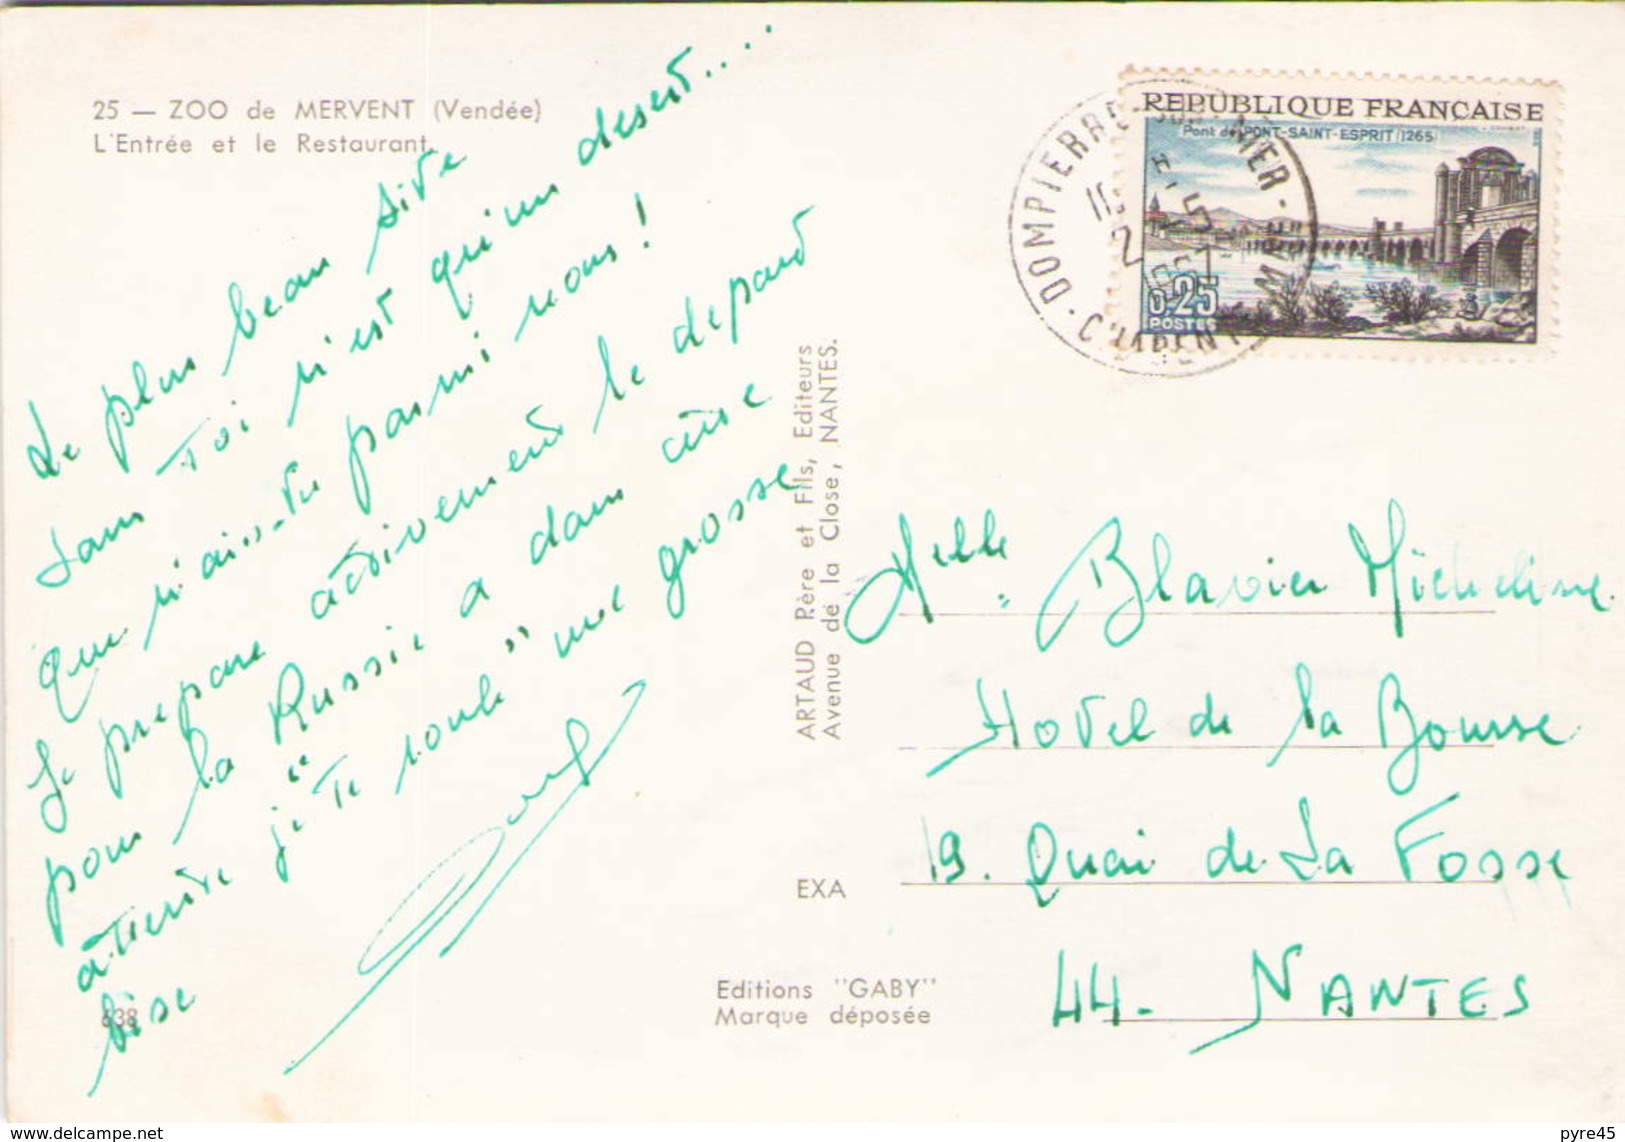 25 — ZOO de MERVENT (Vendée)
L'Entrée et le Restaurant.
Le plus beau site
sans toi n'est qu'un desert....
que n'ais-tu parmi nous!
Je prepare activement le depart
pour la Russie a dans
attendre je te roule "une grosse
bise
638
ARTAUD Père et Fils, Editeurs
Avenue de la Close, NANTES.
EXA
Editions "GABY"
Marque déposée
REPUBLIQUE FRANÇAISE
Pont de PONT-SAINT-ESPRIT (1265)
0,25
POSTES
DOMPIERRE-SUR-MER
Melle Blavier Micheline
Hotel de la Bourse
19. Quai de La Fosse
44. NANTES
www.delcampe.net
pyre45